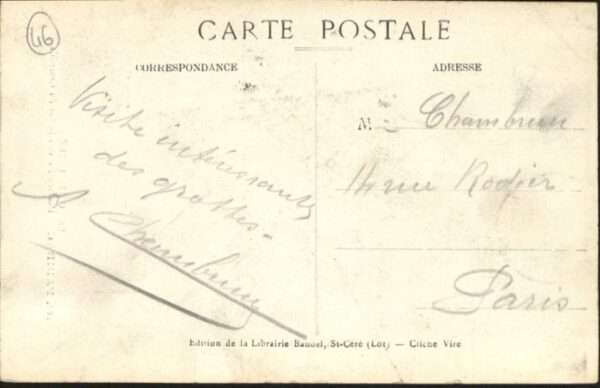 46
CARTE POSTALE
CORRESPONDANCE
ADRESSE
Visite intéressante
des grottes.
Chambrun
M Chambrun
14 rue Rodier
Paris
Edition de la Librairie Baudel, St-Céré (Lot) — Cliché Vire